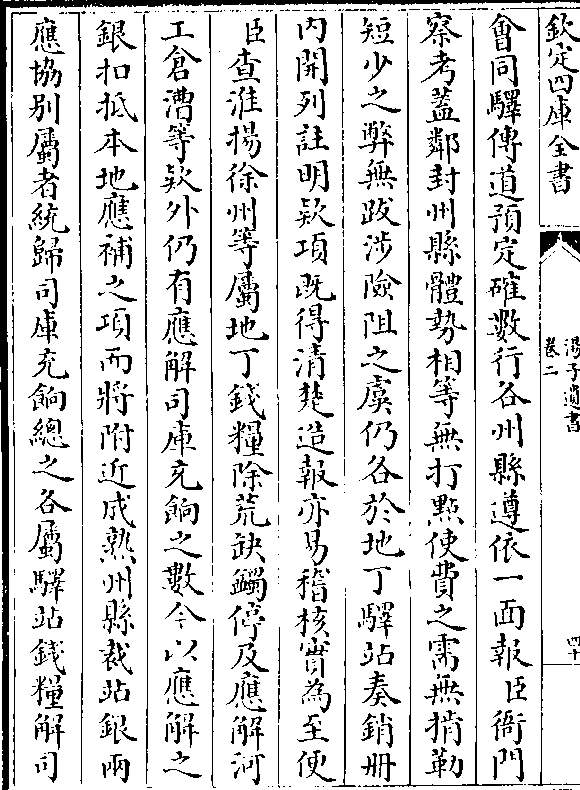 欽定四庫全書
湯子遺書
卷二
四十
會同驛傳道預定確數行各州縣遵依一面報臣衙門
察考蓋鄰封州縣體勢相等無打點使費之需無掯勒
短少之弊無跋涉險阻之虞仍各於地丁驛站奏銷冊
内開列註明欵項既得清楚造報亦易稽核實為至便
臣查淮揚徐州等屬地丁錢糧除荒缺蠲停及應解河
工倉漕等欵外仍有應解司庫充餉之數今以應解之
銀扣抵本地應補之項而將附近成熟州縣裁站銀兩
應協别屬者統歸司庫充餉總之各屬驛站錢糧解司